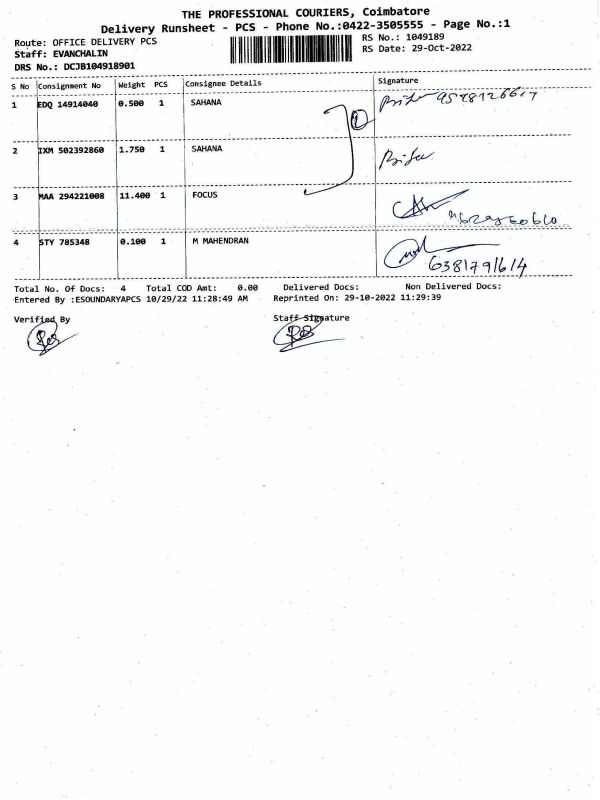 THE PROFESSIONAL COURIERS, Coimbatore
Delivery Runsheet - PCS - Phone No.:0422-3505555 - Page No.:1
Route: OFFICE DELIVERY PCS
Staff: EVANCHALIN
DRS No.: DCJB104918901
RS No.: 1049189
RS Date: 29-Oct-2022
S No Consignment No Weight PCS Consignee Details Signature
1 EDQ 14914040 0.500 1 SAHANA
2 IXM 502392860 1.750 1 SAHANA
3 MAA 294221008 11.400 1 FOCUS
4 STY 785348 0.100 1 M MAHENDRAN
6381791614
Total No. Of Docs: 4 Total COD Amt: 0.00 Delivered Docs: Non Delivered Docs:
Entered By :ESOUNDARYAPCS 10/29/22 11:28:49 AM Reprinted On: 29-10-2022 11:29:39
Verified By Staff Signature